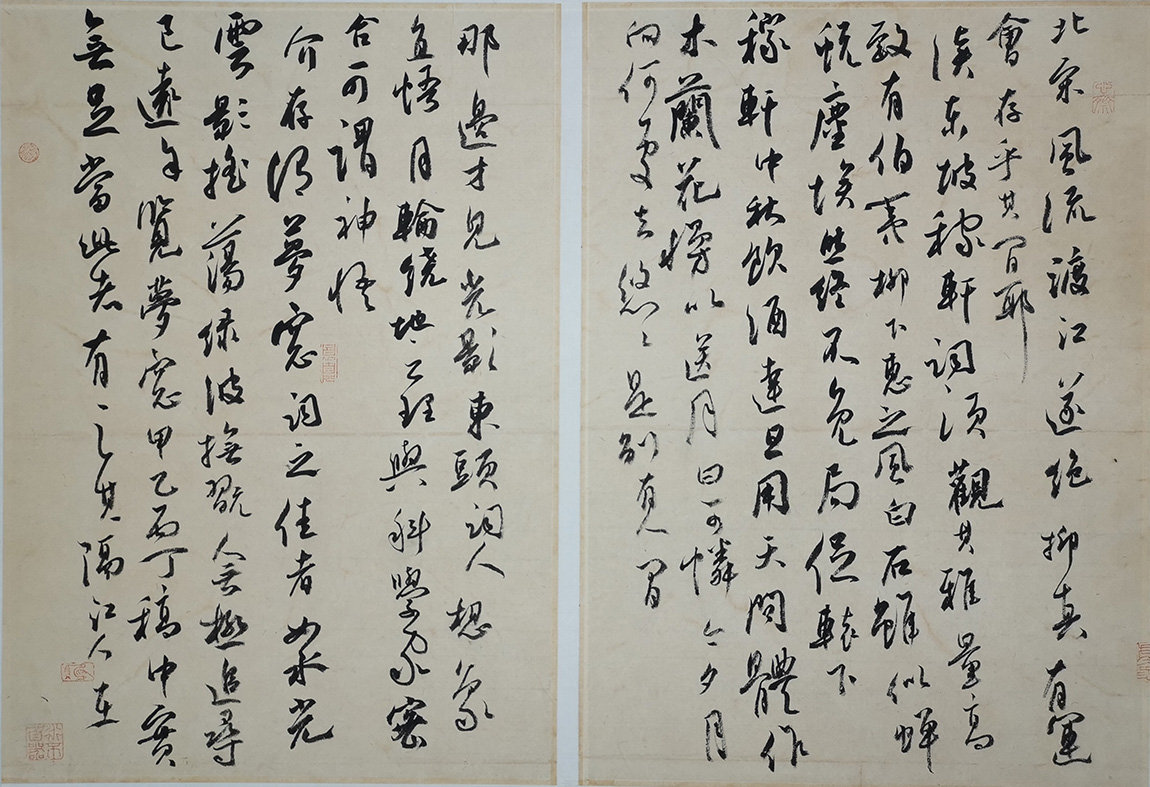 北宋風流渡江遂絕抑真有運
會存乎其間耶
讀東坡稼軒詞須觀其雅量高
致有伯夷柳下惠之風白石雖似蟬
蛻塵埃然終不免局促轅下
稼軒中秋飲酒達旦用天問體作
木蘭花慢以送月曰可憐今夕月
向何處去悠〻是別有人間
那邊才見光影東頭詞人想象
直悟月輪繞地之理與科學家密
合可謂神悟
介存謂夢窗詞之佳者如水光
雲影搖蕩綠波撫翫無極追尋
已遠余覽夢窗甲乙丙丁稿中實
無足當此者有之其隔江人在